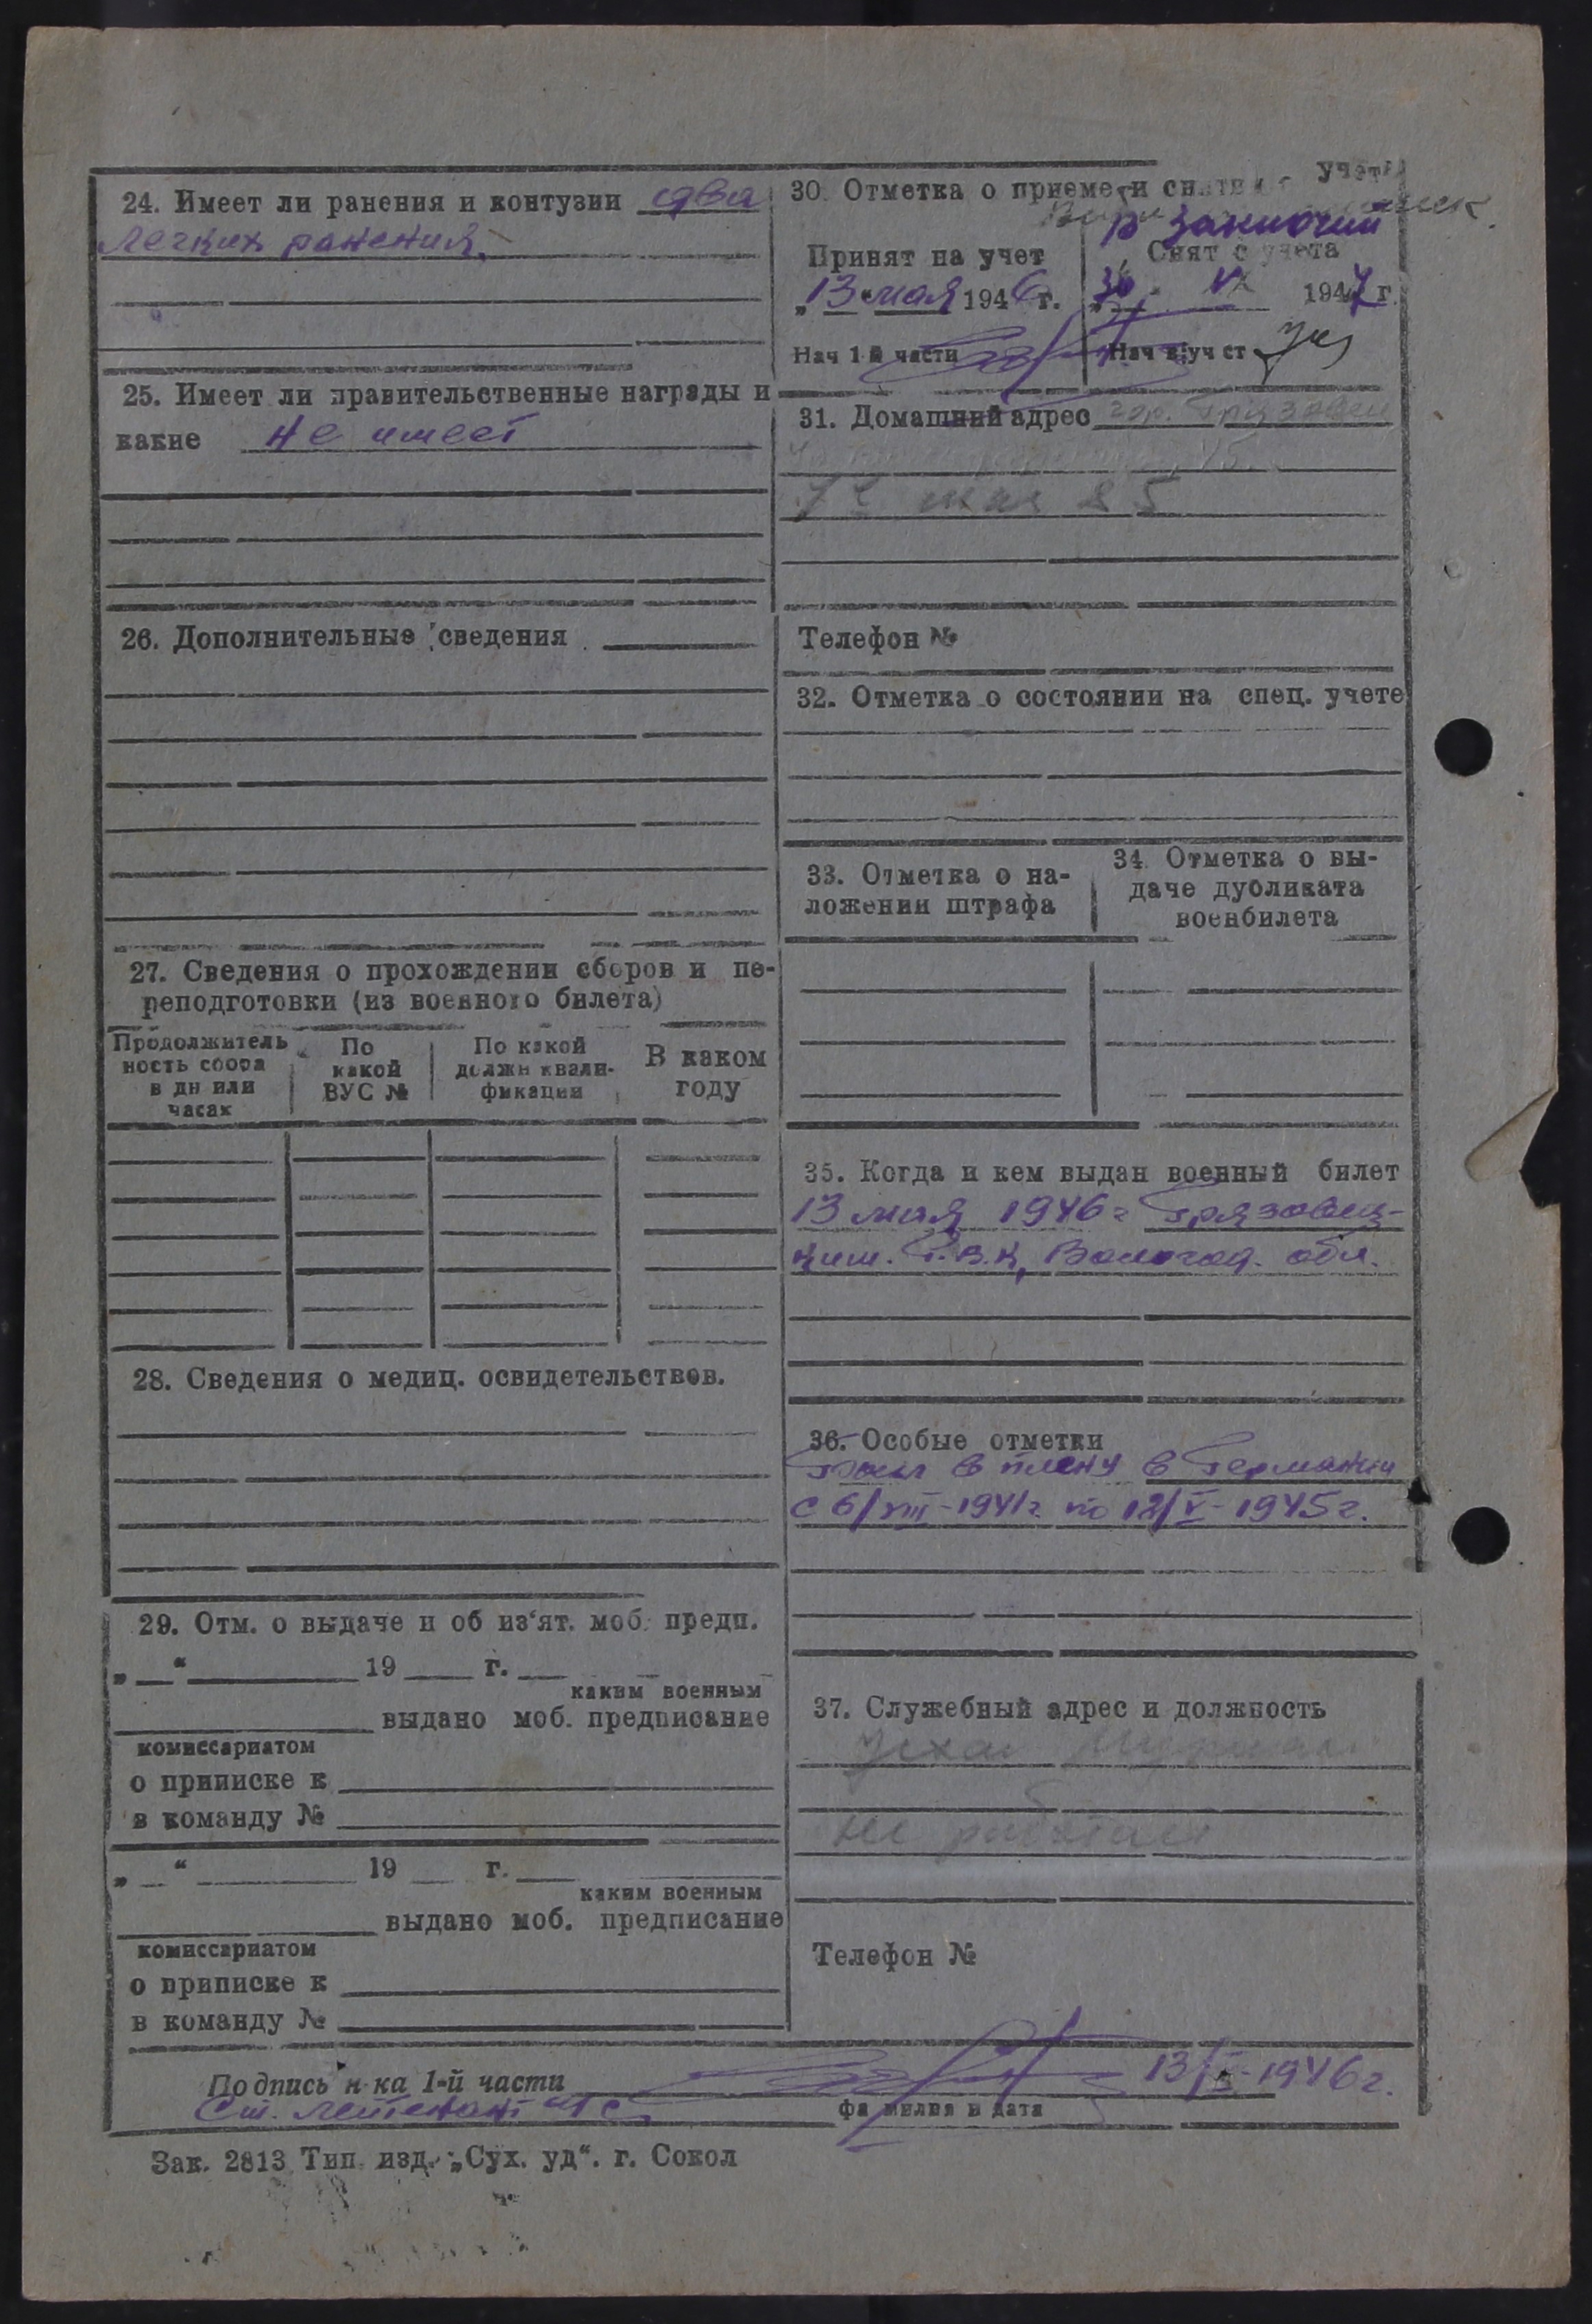 24. Имеет ли ранения и контузии два
легких ранения.
25. Имеет ли правительственные награды и
какие не имеет
26. Дополнительные сведения
27. Сведения о прохождении сборов и пе-
реподготовки (из военного билета)
Продолжитель
ность сбора
в дн или
часах
По
какой
ВУС №
По какой
должн квали-
фикации
В каком
году
28. Сведения о медиц. освидетельствов.
29. Отм. о выдаче и об из‘ят. моб. предп.
„ “ 19 г.
каким военным
выдано моб. предписание
комиссариатом
о приписке к
в команду №
„ “ 19 г.
каким военным
выдано моб. предписание
комиссариатом
о приписке к
в команду №
30. Отметка о приеме и снятии учет
Принят на учет
„13“ мая 1946 г.
Нач 1 й части
Снят с учета
„30 1947 г.
Нач в/уч ст
31. Домашний адрес гор. Грязовец
мая 85
Телефон №
32. Отметка о состоянии на спец. учете
33. Отметка о на-
ложении штрафа
34. Отметка о вы-
даче дубликата
военбилета
35. Когда и кем выдан военный билет
13 мая 1946 г Грязовец-
ким. Р.В.К, Вологод. обл.
36. Особые отметки
Был в плену в Германии
с 6/VIII-1941г. по 12/V-1945г.
37. Служебный адрес и должность
не работает
Телефон №
Подпись н-ка 1-й части 13/V-1946г.
Ст. лейтенант
фамилия и дата
Зак. 2813 Тип. изд. „Сух. уд“. г. Сокол